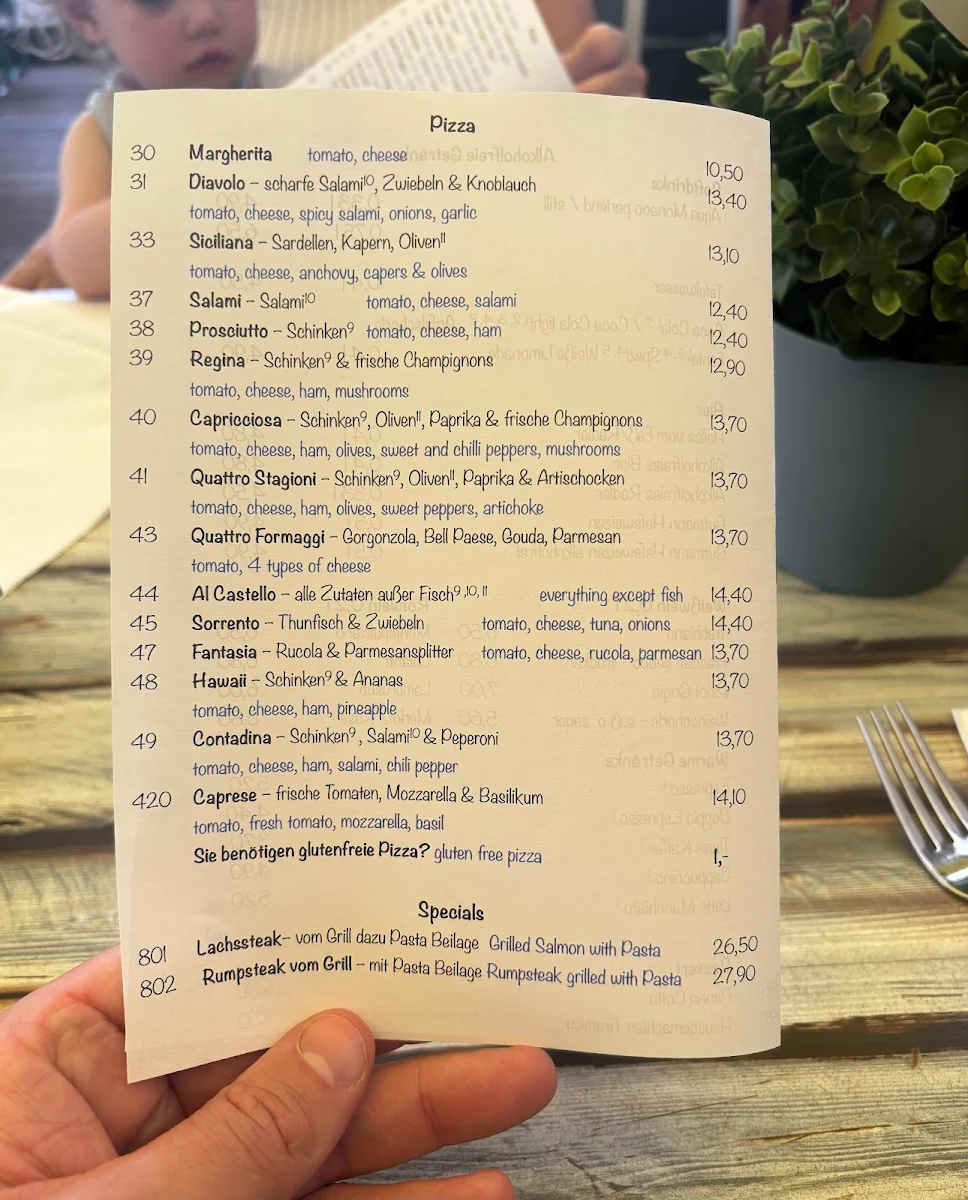 Pizza
30 Margherita tomato, cheese 10,50
31 Diavolo – scharfe Salami¹⁰, Zwiebeln & Knoblauch 13,40
tomato, cheese, spicy salami, onions, garlic
33 Siciliana – Sardellen, Kapern, Oliven¹¹ 13,10
tomato, cheese, anchovy, capers & olives
37 Salami – Salami¹⁰ tomato, cheese, salami 12,40
38 Prosciutto – Schinken⁹ tomato, cheese, ham 12,40
39 Regina – Schinken⁹ & frische Champignons 12,90
tomato, cheese, ham, mushrooms
40 Capricciosa – Schinken⁹, Oliven¹¹, Paprika & frische Champignons 13,70
tomato, cheese, ham, olives, sweet and chilli peppers, mushrooms
41 Quattro Stagioni – Schinken⁹, Oliven¹¹, Paprika & Artischocken 13,70
tomato, cheese, ham, olives, sweet peppers, artichoke
43 Quattro Formaggi – Gorgonzola, Bell Paese, Gouda, Parmesan 13,70
tomato, 4 types of cheese
44 Al Castello – alle Zutaten außer Fisch⁹,¹⁰,¹¹ everything except fish 14,40
45 Sorrento – Thunfisch & Zwiebeln tomato, cheese, tuna, onions 14,40
47 Fantasia – Rucola & Parmesansplitter tomato, cheese, rucola, parmesan 13,70
48 Hawaii – Schinken⁹ & Ananas 13,70
tomato, cheese, ham, pineapple
49 Contadina – Schinken⁹, Salami¹⁰ & Peperoni 13,70
tomato, cheese, ham, salami, chili pepper
420 Caprese – frische Tomaten, Mozzarella & Basilikum 14,10
tomato, fresh tomato, mozzarella, basil
Sie benötigen glutenfreie Pizza? gluten free pizza 1,-
Specials
801 Lachssteak– vom Grill dazu Pasta Beilage Grilled Salmon with Pasta 26,50
802 Rumpsteak vom Grill – mit Pasta Beilage Rumpsteak grilled with Pasta 27,90